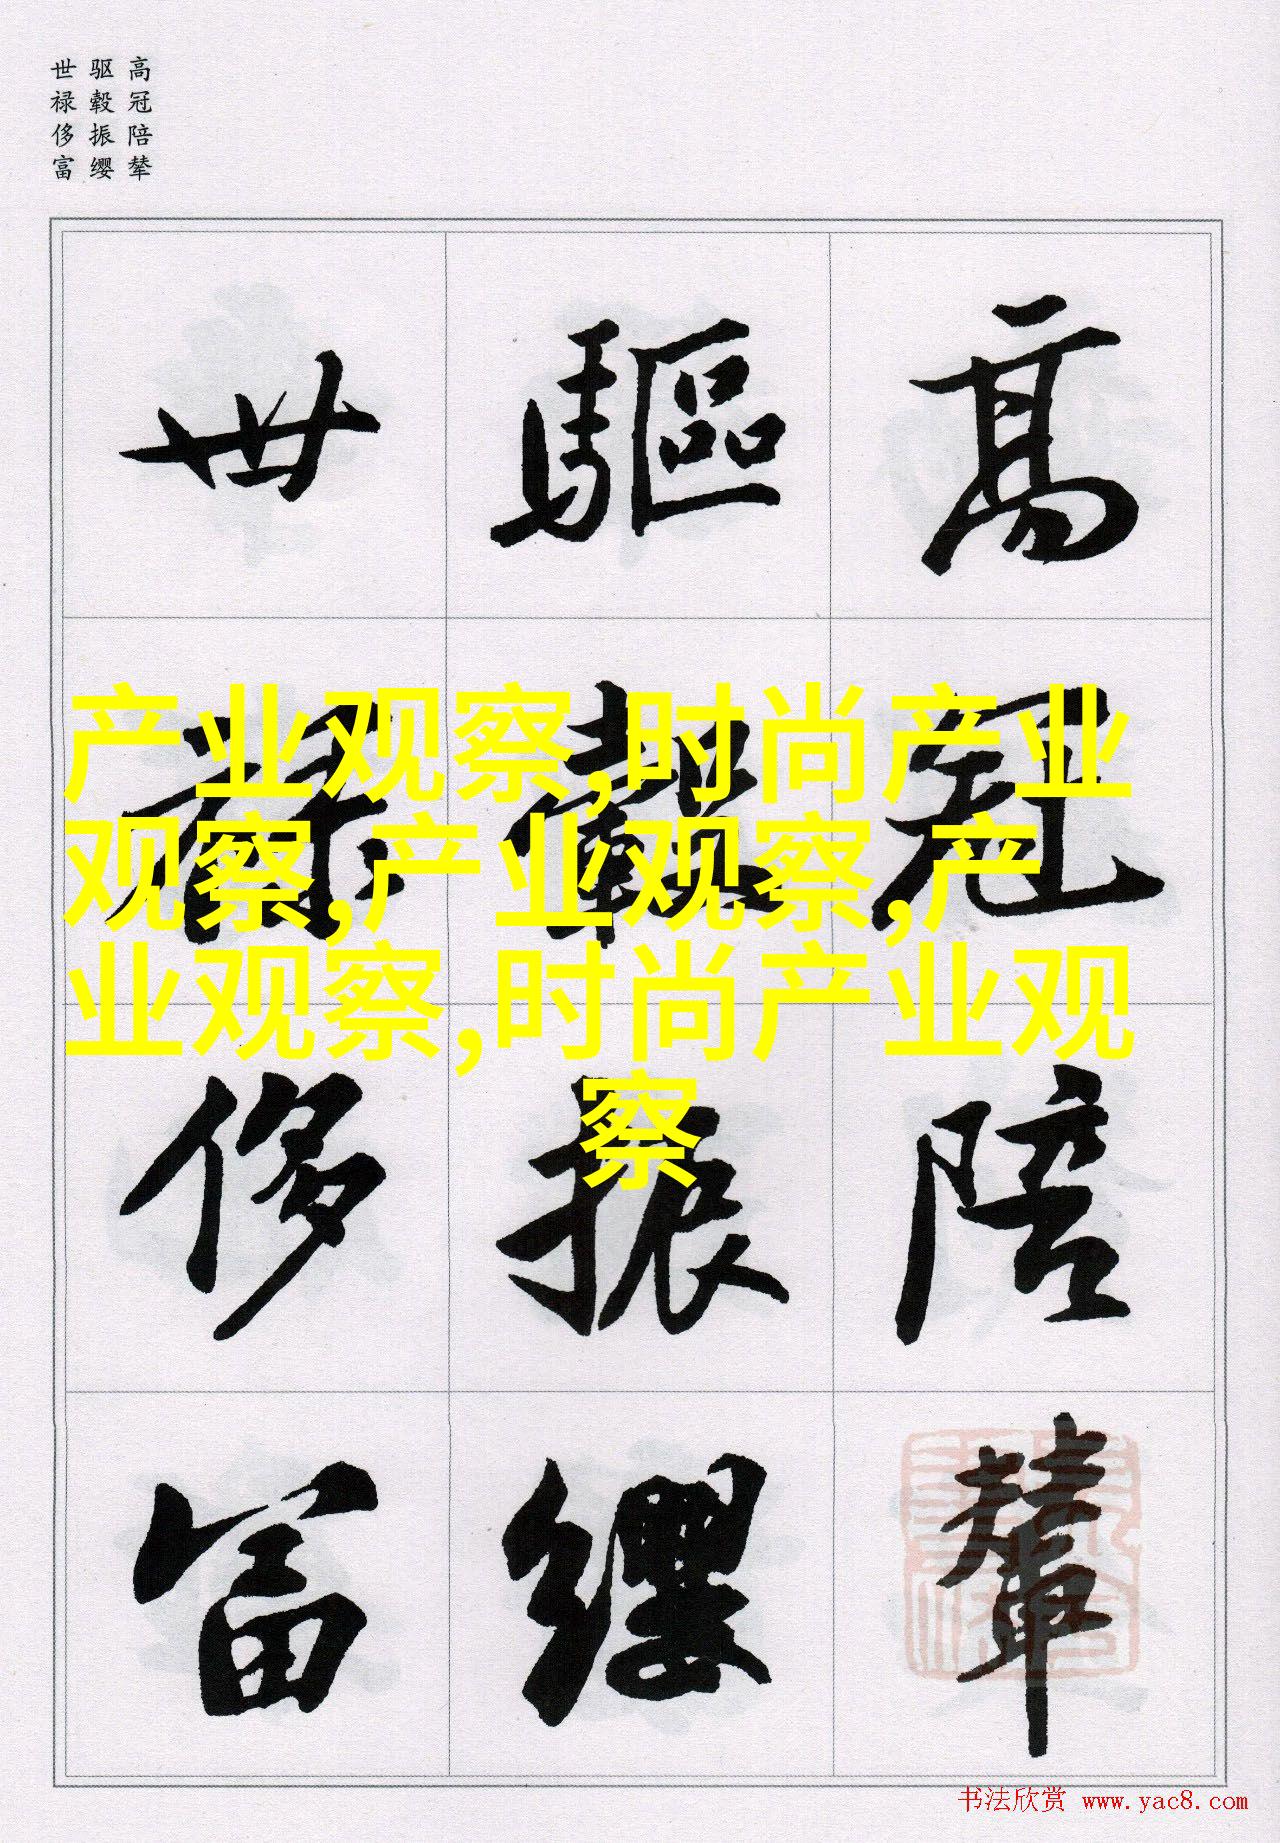 高冠陪辇
驱毂振缨
世禄侈富
高冠陪輦
驅轂振纓
世禄侈富
产业观察,时尚产业
观察,产业观察,产
业观察,时尚产业观
察
书法欣赏 www.yac8.com